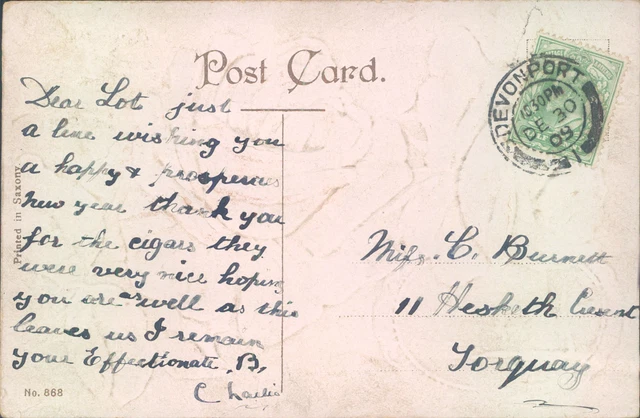 Post Card.
Dear Lot just
a line wishing you
a happy & prosperous
New year thank you
for the cigars they
were very nice hoping
you are well as this
leaves us I remain
your Effectionate B.
Charlie
Printed in Saxony
No. 868
DEVONPORT
10.30PM
DE 30
09
Miss. C. Burnett
11 Hesketh Cresent
Torquay